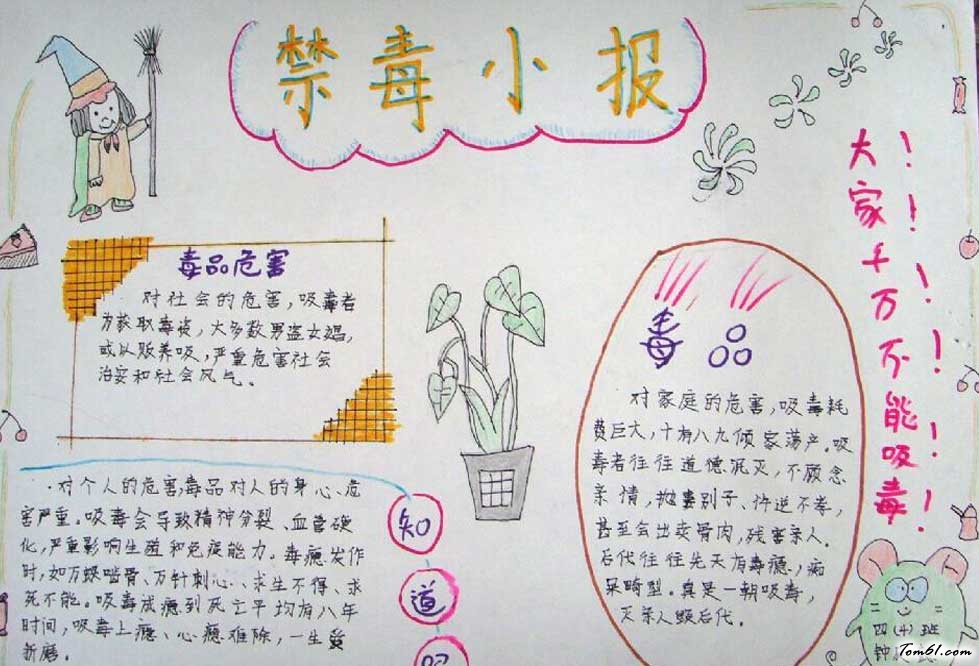 禁毒小报
毒品危害
对社会的危害，吸毒者
为获取毒资，大多数男盗女娼，
或以贩养吸，严重危害社会
治安和社会风气。
·对个人的危害，毒品对人的身心、危
害严重。吸毒会导致精神分裂、血管硬
化，严重影响生殖和免疫能力。毒瘾发作
时，如万蚁啮骨、万针刺心、求生不得、求
死不能。吸毒成瘾到死亡平均有八年
时间，吸毒上瘾、心瘾难除，一生受
折磨。
知
道
毒品
对家庭的危害，吸毒耗
费巨大，十有八九倾家荡产。吸
毒者往往道德泯灭，不顾念
亲情，抛妻别子、忤逆不孝，
甚至会出卖骨肉，残害亲人。
后代往往先天有毒瘾，痴
呆畸型。真是一朝吸毒，
灭亲人毁后代。
大家千万不能吸毒!!!!!!
四(4)班
钟
Tom61.com